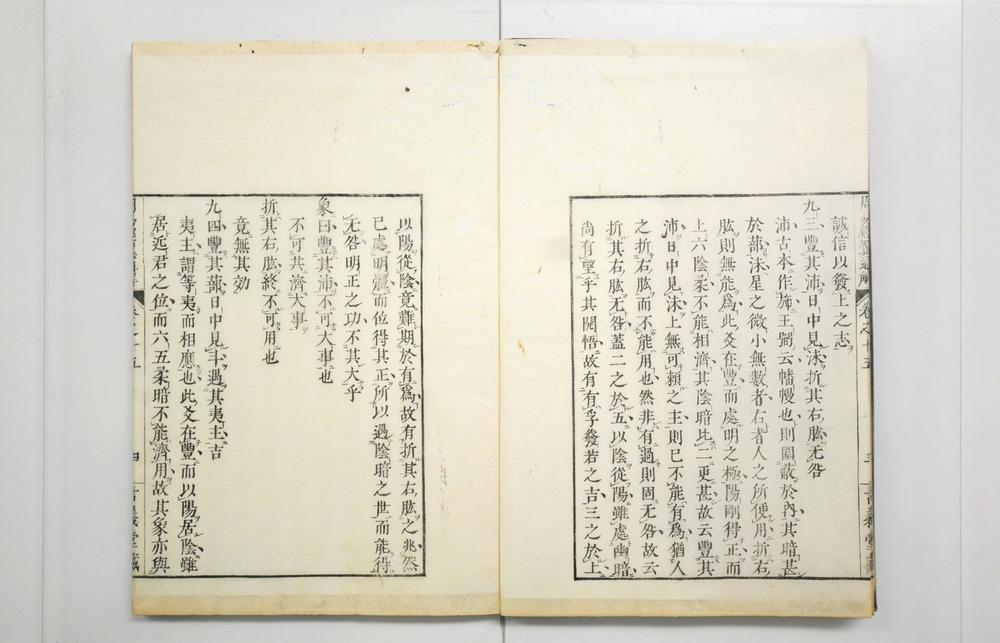 誠信以發上之志
九三豐其沛日中見沬折其右肱无咎
沛古本作旆王弼云幡幔也則圍蔽於內其暗甚
於蔀沬星之微小無數者右者人之所便用折右
肱則無能爲此爻在豐而處明之極陽剛得正而
上六陰柔不能相濟其陰暗比二更甚故云豐其
沛日中見沬上無可賴之主則已不能有爲猶人
之折右肱而不能用也然非有過則固无咎故云
折其右肱无咎蓋二之於五以陰從陽雖處幽暗
尚有望乎其開悟故有有孚發若之吉三之於上
以陽從陰竟難期於有爲故有折其右肱之兆然
已處明體而位得其正所以遇陰暗之世而能得
无咎明正之功不其大乎
象曰豐其沛不可大事也
不可共濟大事
折其右肱終不可用也
竟無其効
九四豐其蔀日中見斗遇其夷主吉
夷主謂等夷而相應也此爻在豐而以陽居陰雖
居近君之位而六五柔暗不能濟用故其象亦與
卷之十五
四